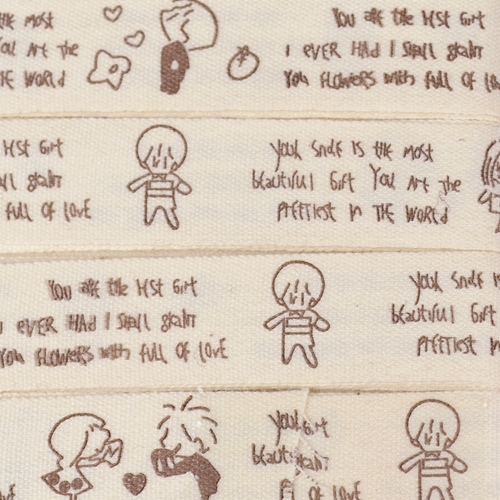 the most
You Are the
the World
You are the best Gift
I EVER HAd I Shall
You flowers with full OF
best Gift
full OF lOVE
Your Smile IS the most
beautiful Gift You Are the
prettiest in THE World
You are the best Gift
EVER HAd I Shall
You flowers with full OF lOVE
Your Smile
beautiful Gift
prettiest
Your
OF lOVE